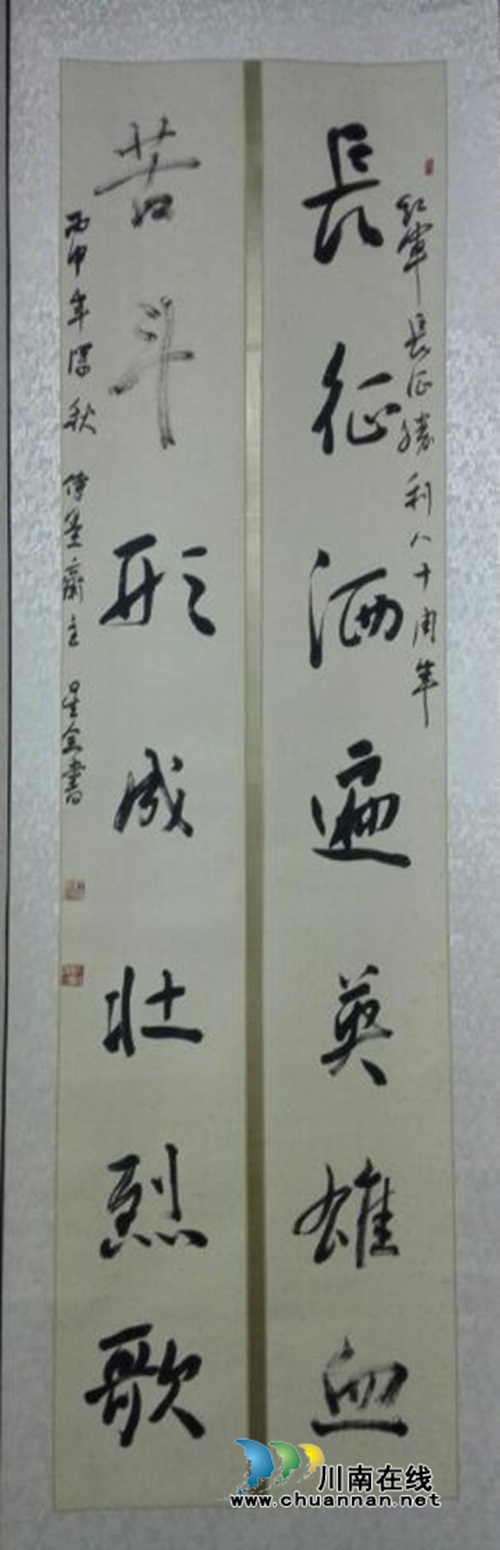 红军長征勝利八十周年
長征洒遍英雄血
苦斗形成壮烈歌
丙申年深秋
星全書
川南在线
www.chuannan.net